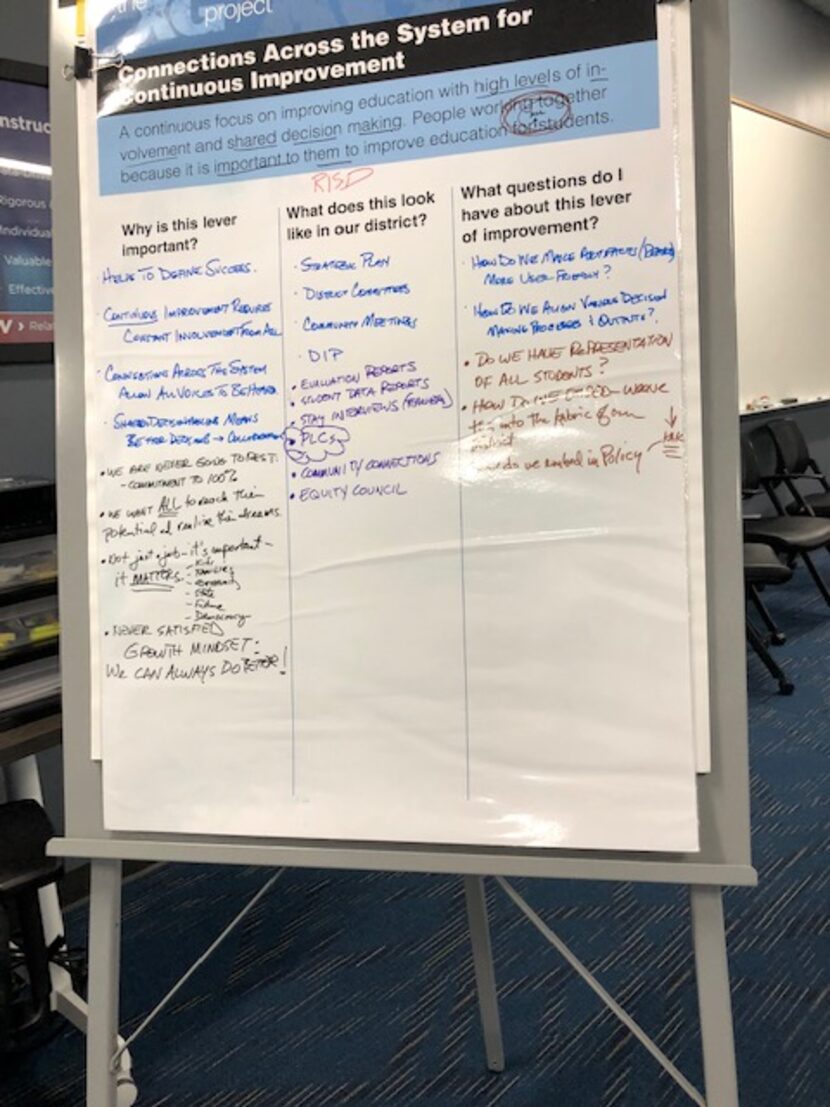 the
project
Connections Across the System for
Continuous Improvement
A continuous focus on improving education with high levels of in-
volvement and shared decision making. People working together
because it is important to them to improve education for students.
ALL
RISD
Why is this lever
important?
HELPS TO DEFINE SUCCESS.
CONTINUOUS IMPROVEMENT REQUIRES
CONSTANT INVOLVEMENT FROM ALL
CONNECTIONS ACROSS THE SYSTEM
ALLOW ALL VOICES TO BE HEARD
SHARED DECISION MAKING MEANS
BETTER DECISIONS → COLLABORATION
• WE ARE NEVER GOING TO REST.
- COMMITMENT TO 100%
• WE WANT ALL to reach their
potential & realize their dreams.
• Not just a job - it's important -
it MATTERS
- Kids
- Families
- Community
- State
- Future
- Democracy
• NEVER SATISFIED
GROWTH MINDSET:
WE CAN ALWAYS DO BETTER!
What does this look
like in our district?
· STRATEGIC PLAN
· DISTRICT COMMITTEES
· COMMUNITY MEETINGS
· DIP
• EVALUATION REPORTS
• STUDENT DATA REPORTS
• STAY INTERVIEWS
• PLCs
• COMMUNITY CONNECTIONS
• EQUITY COUNCIL
What questions do I
have about this lever
of improvement?
· HOW DO WE MAKE ARTIFACTS
MORE USER-FRIENDLY?
· HOW DO WE ALIGN VARIOUS DECISION
MAKING PROCESSES & OUTPUTS?
• DO WE HAVE REPRESENTATION
OF ALL STUDENTS?
• HOW DO WE weave
into the fabric of our
district
how do we embed in Policy
Instruc
Rigorous
Individual
Valuable
Effective
V > Rela